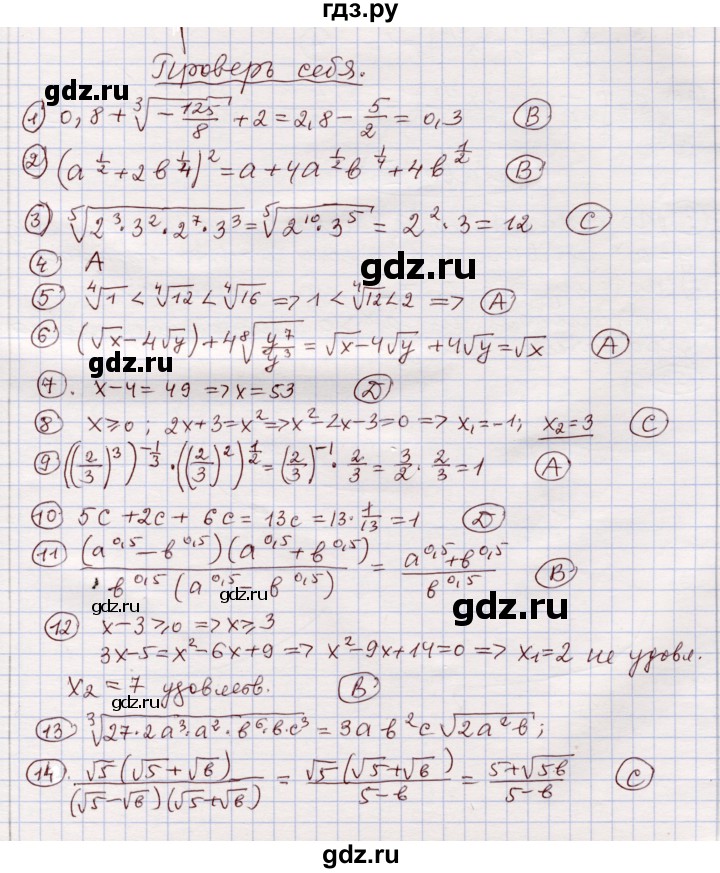 гдз.ру
Проверь себя.
1) 0,8 + ∛(-125/8) + 2 = 2,8 - 5/2 = 0,3 (B)
gdz.ru
2) (a^(1/2) + 2b^(1/4))² = a + 4a^(1/2)b^(1/4) + 4b^(1/2) (B)
3) ⁵√(2³·3²·2⁷·3³) = ⁵√(2¹⁰·3⁵) = 2²·3 = 12 (C)
4) A
gdz.ru
5) ⁴√1 < ⁴√12 < ⁴√16 => 1 < ⁴√12 < 2 => (A)
6) (√x - 4√y) + 4⁸√(y⁷/y³) = √x - 4√y + 4√y = √x (A)
gdz.ru
7). x-4 = 49 => x = 53 (D)
8) x ⩾ 0; 2x+3 = x² => x²-2x-3 = 0 => x₁ = -1; x₂ = 3 (C)
9) ((2/3)³)^(-1/3) · ((2/3)²)^(1/2) = (2/3)^(-1) · 2/3 = 3/2 · 2/3 = 1 (A)
10) 5c + 2c + 6c = 13c = 13·1/13 = 1 (D)
11) (a^0,5 - b^0,5)(a^0,5 + b^0,5) / b^0,5 (a^0,5 - b^0,5) = (a^0,5 + b^0,5) / b^0,5 (B)
gdz.ru
gdz.ru
12) x-3 ⩾ 0 => x ⩾ 3
3x-5 = x²-6x+9 => x²-9x+14 = 0 => x₁ = 2 не удовл.
x₂ = 7 удовлетв. (B)
gdz.ru
13) ∛(27·2a³·a²·b⁶·b·c³) = 3ab²c√(2a²b);
14). √5(√5+√b) / (√5-√b)(√5+√b) = √5(√5+√b) / 5-b = 5+√5b / 5-b (C)
gdz.ru
gdz.ru